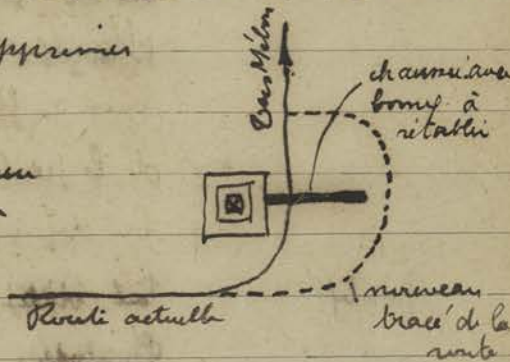 supprimer
vers Mélou
chaussée avec
bornes à
rétablir
Route actuelle
nouveau
tracé de la
route